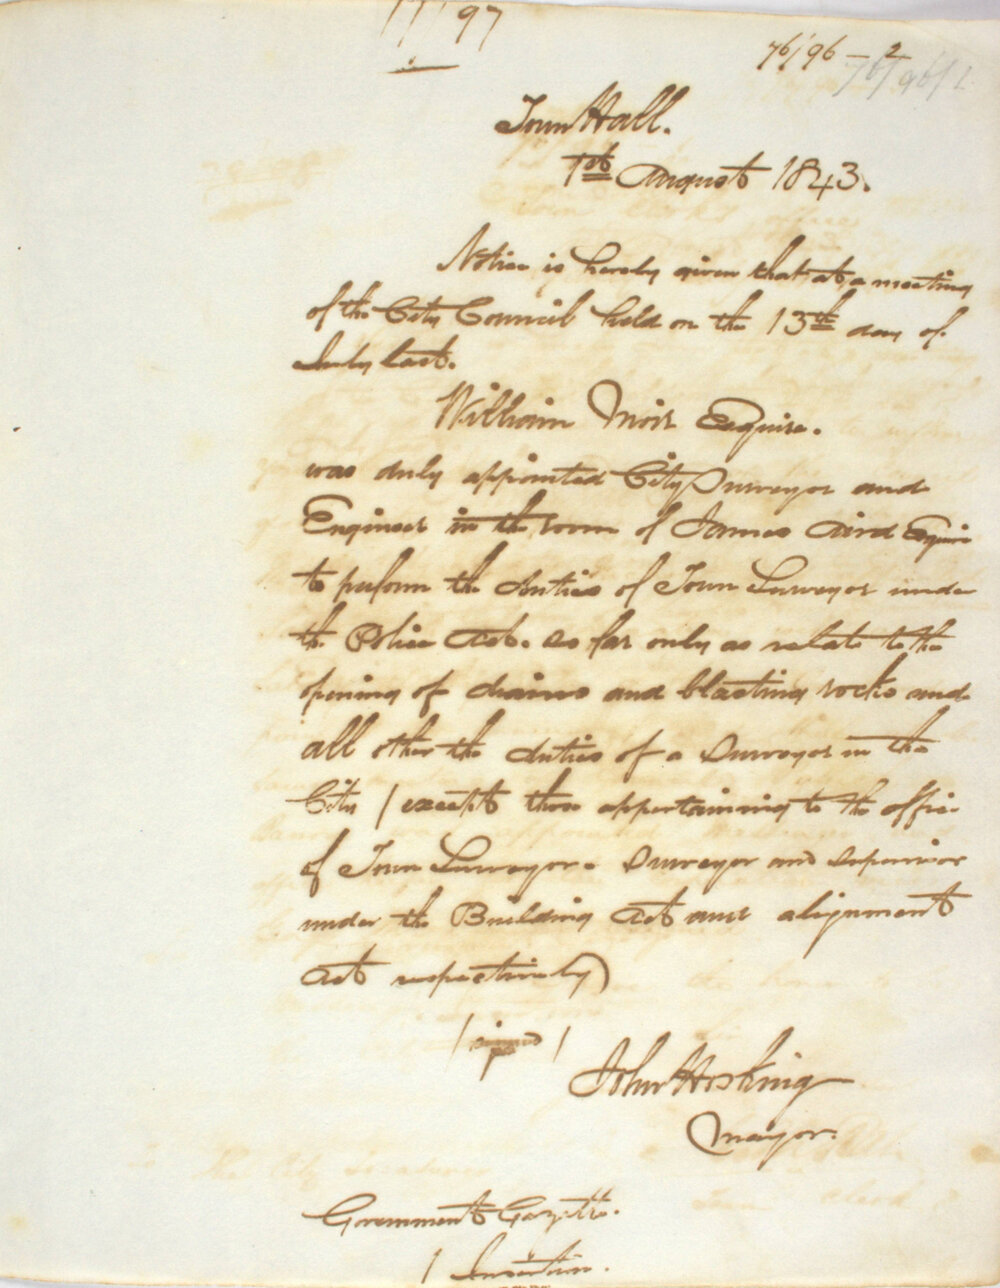 97
76/96 - 2
76/96/2
Town Hall.
1st August 1843.
Notice is hereby given that at a meeting
of the City Council held on the 13th day of
July last.
William Esquire.
was duly appointed City Surveyor and
Engineer in the room of James Aird Esquire
to perform the duties of Town Surveyor under
the Police Act. so far only as relate to the
opening of drains and blasting rocks and
all other the duties of a Surveyor in the
City (except those appertaining to the office
of Town Surveyor. Surveyor and
under the Building Act and alignment
Act respectively)
(signed)
John Hosking
Mayor.
Government Gazette.
1 Insertion.